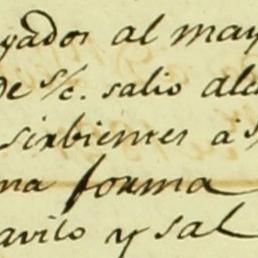 yados al may
de s/c. salio alca
sirbientes á s
na forma
avito y sal